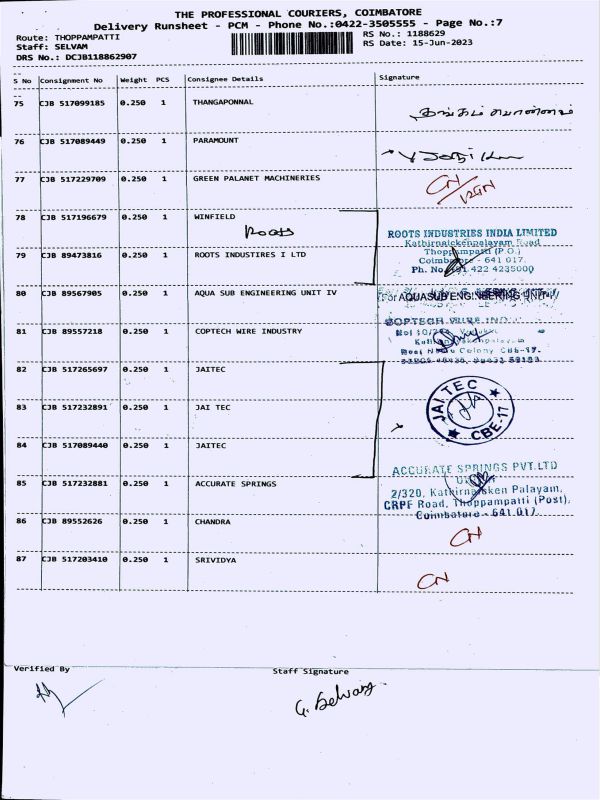 THE PROFESSIONAL COURIERS, COIMBATORE
Delivery Runsheet - PCM - Phone No.:0422-3505555 - Page No.:7
Route: THOPPAMPATTI RS No.: 1188629
Staff: SELVAM RS Date: 15-Jun-2023
DRS No.: DCJB118862907
S No Consignment No Weight PCS Consignee Details Signature
75 CJB 517099185 0.250 1 THANGAPONNAL
76 CJB 517089449 0.250 1 PARAMOUNT
77 CJB 517229709 0.250 1 GREEN PALANET MACHINERIES CN
78 CJB 517196679 0.250 1 WINFIELD
Roots
ROOTS INDUSTRIES INDIA LIMITED
Kathirnaickenpalayam Road
79 CJB 89473816 0.250 1 ROOTS INDUSTIRES I LTD
Thoppampatti (P.O.)
Coimbatore - 641 017.
Ph. No. 422 4235000
80 CJB 89567905 0.250 1 AQUA SUB ENGINEERING UNIT IV
For AQUASUB ENGINEERING UNIT IV
81 CJB 89557218 0.250 1 COPTECH WIRE INDUSTRY
COPTECH WIRE IND
Colony CBE-17.
82 CJB 517265697 0.250 1 JAITEC
83 CJB 517232891 0.250 1 JAI TEC
JAI TEC
CBE-17
84 CJB 517089440 0.250 1 JAITEC
ACCURATE SPRINGS PVT.LTD
85 CJB 517232881 0.250 1 ACCURATE SPRINGS
2/320, Kathirnaicken Palayam,
CRPF Road, Thoppampatti (Post),
Coimbatore - 641 017
86 CJB 89552626 0.250 1 CHANDRA CN
87 CJB 517203410 0.250 1 SRIVIDYA CN
Verified By Staff Signature
G. Selvam